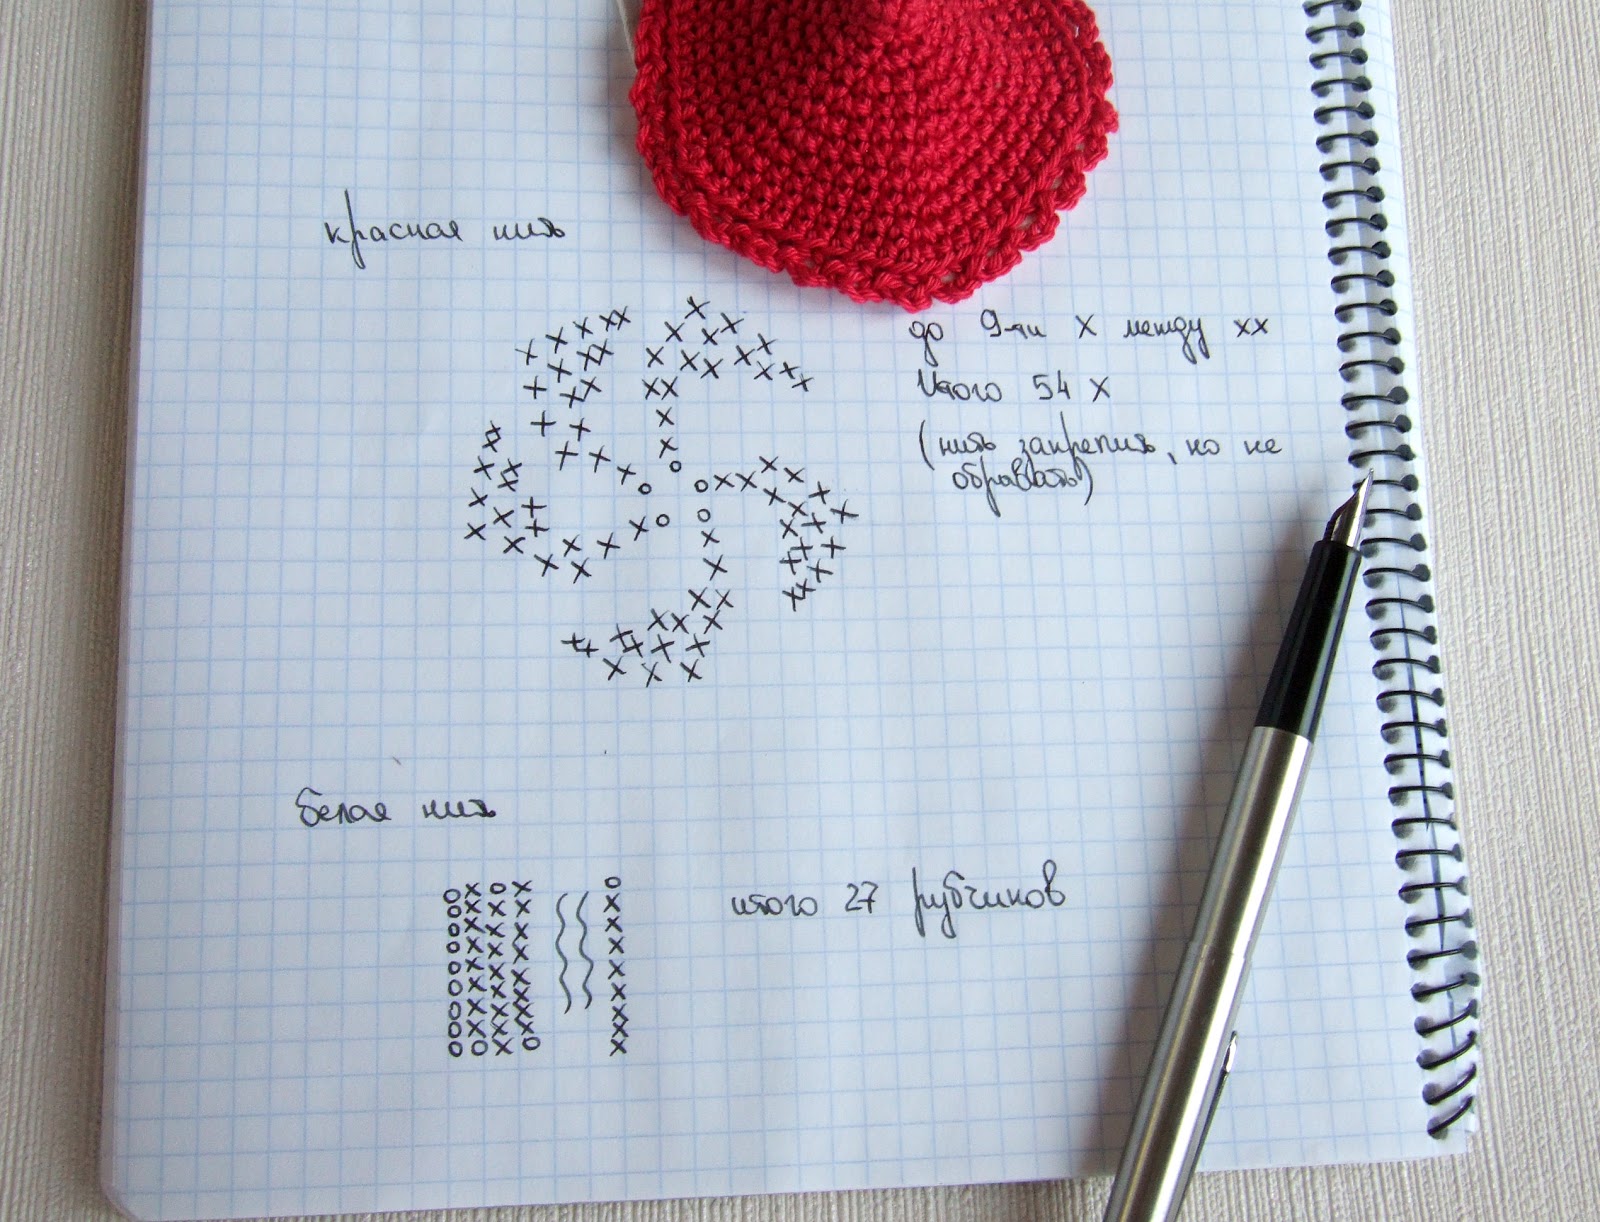 красная нить
до 9-ти х между хх
Итого 54 х
(нить закрепить, но не
обрывать)
белая нить
итого 27 рубчиков